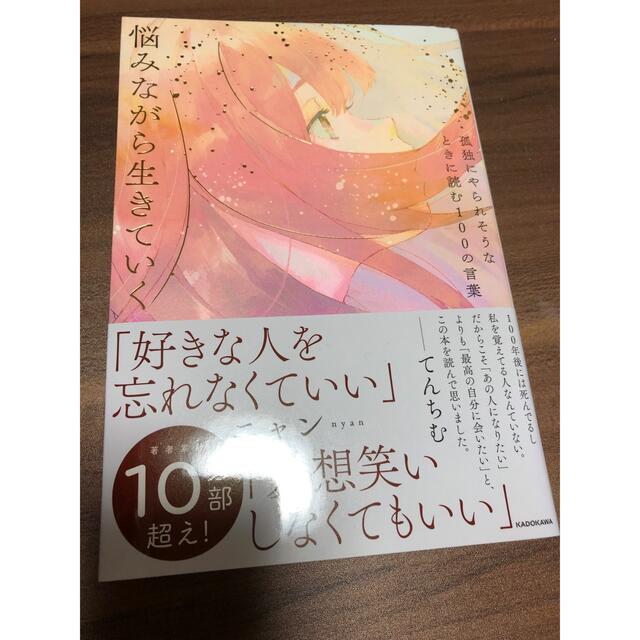 悩みながら生きていく
孤独にやられそうな
ときに読む100の言葉
100年後には死んでるし
私を覚えてる人なんていない。
だからこそ「あの人になりたい」
よりも「最高の自分に会いたい」と、
この本を読んで思いました。
──てんちむ
「好きな人を
忘れなくていい」
ニャン nyan
想笑い
しなくてもいい」
著者累
10
部
超え!
KADOKAWA